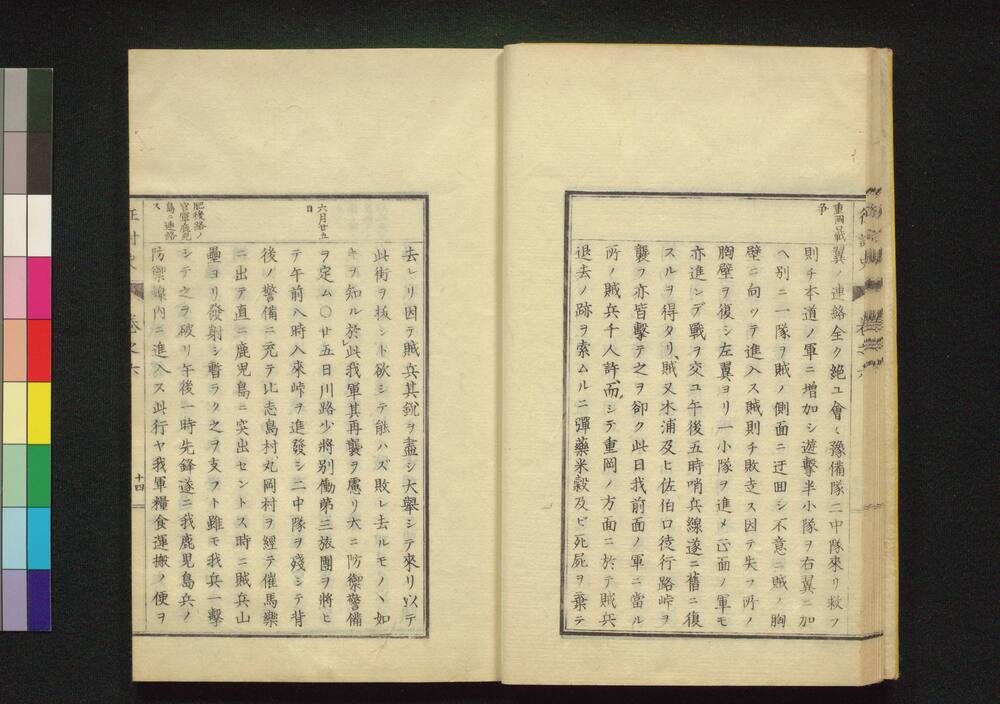 重岡最
争
翼ノ連絡全ク絶ユ會々豫備隊二中隊來リ救フ
則チ本道ノ軍ニ増加シ遊撃半小隊ヲ右翼ニ加
ヘ別ニ一隊ヲ賊ノ側面ニ迂回シ不意ニ賊ノ胸
壁ニ向ッテ進入ス賊則チ敗走ス因テ失フ所ノ
胸壁ヲ復シ左翼ヨリ一小隊ヲ進メ正面ノ軍モ
亦進ンデ戰ヲ交ユ午後五時哨兵線遂ニ舊ニ復
スルヲ得タリ、賊又木浦及ヒ佐伯口徒行路峠ヲ
襲フ亦皆撃テ之ヲ卻ク此日我前面ノ軍ニ當ル
所ノ賊兵千人許、而シテ重岡ノ方面ニ於テ賊兵
退去ノ跡ヲ索ムルニ彈藥米穀及ビ死屍ヲ棄テ
去レリ因テ賊兵其鋭ヲ盡シ大擧シテ來リ以テ
此街ヲ拔ント欲シテ能ハズ敗レ去ルモノヽ如
キヲ知ル於此我軍其再襲ヲ慮リ大ニ防禦警備
六月廿五
日
ヲ定ム〇廿五日川路少將別働第三旅團ヲ將ヒ
テ午前八時入來峠ヲ進發シ二中隊ヲ殘シテ背
後ノ警備ニ充テ比志島村、丸岡村ヲ經テ催馬樂
ニ出テ直ニ鹿児島ニ突出セントス時ニ賊兵山
壘ヨリ發射シ暫ラク之ヲ支フト雖モ我兵一撃
肥後路ノ
官軍鹿児
島ニ連絡
ス
シテ之ヲ破リ午後一時先鋒遂ニ我鹿児島兵ノ
防禦線內ニ進入ス此行ヤ我軍糧食運搬ノ便ヲ
十四